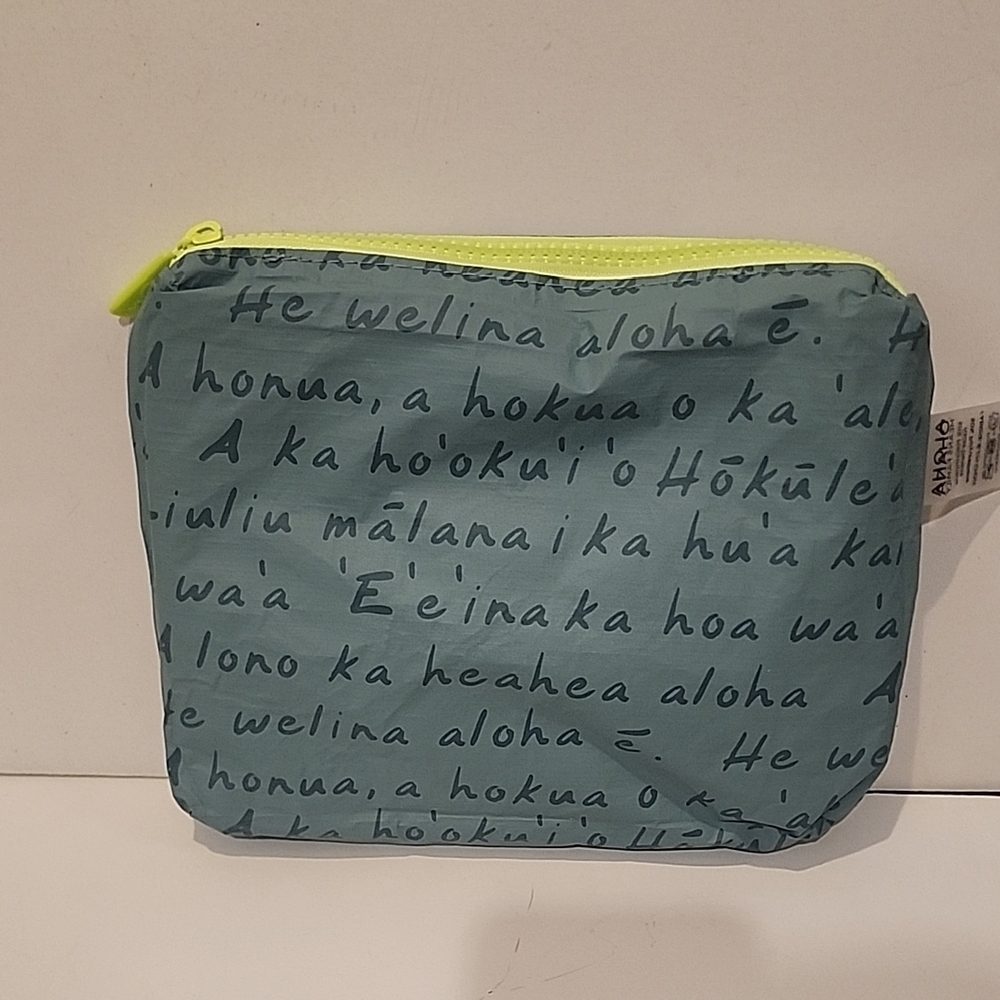 ono ka heahea aloha
He welina aloha ē. H
A honua, a hokua o ka 'ale,
A ka ho'oku'i 'o Hōkūle'a
iuliu mālana i ka hu'a kai
wa'a 'E'e'ina ka hoa wa'a
A lono ka heahea aloha A
He welina aloha ē. He we
A honua, a hokua o ka 'al
A ka ho'oku'i 'o Hōkūl
ALOHA